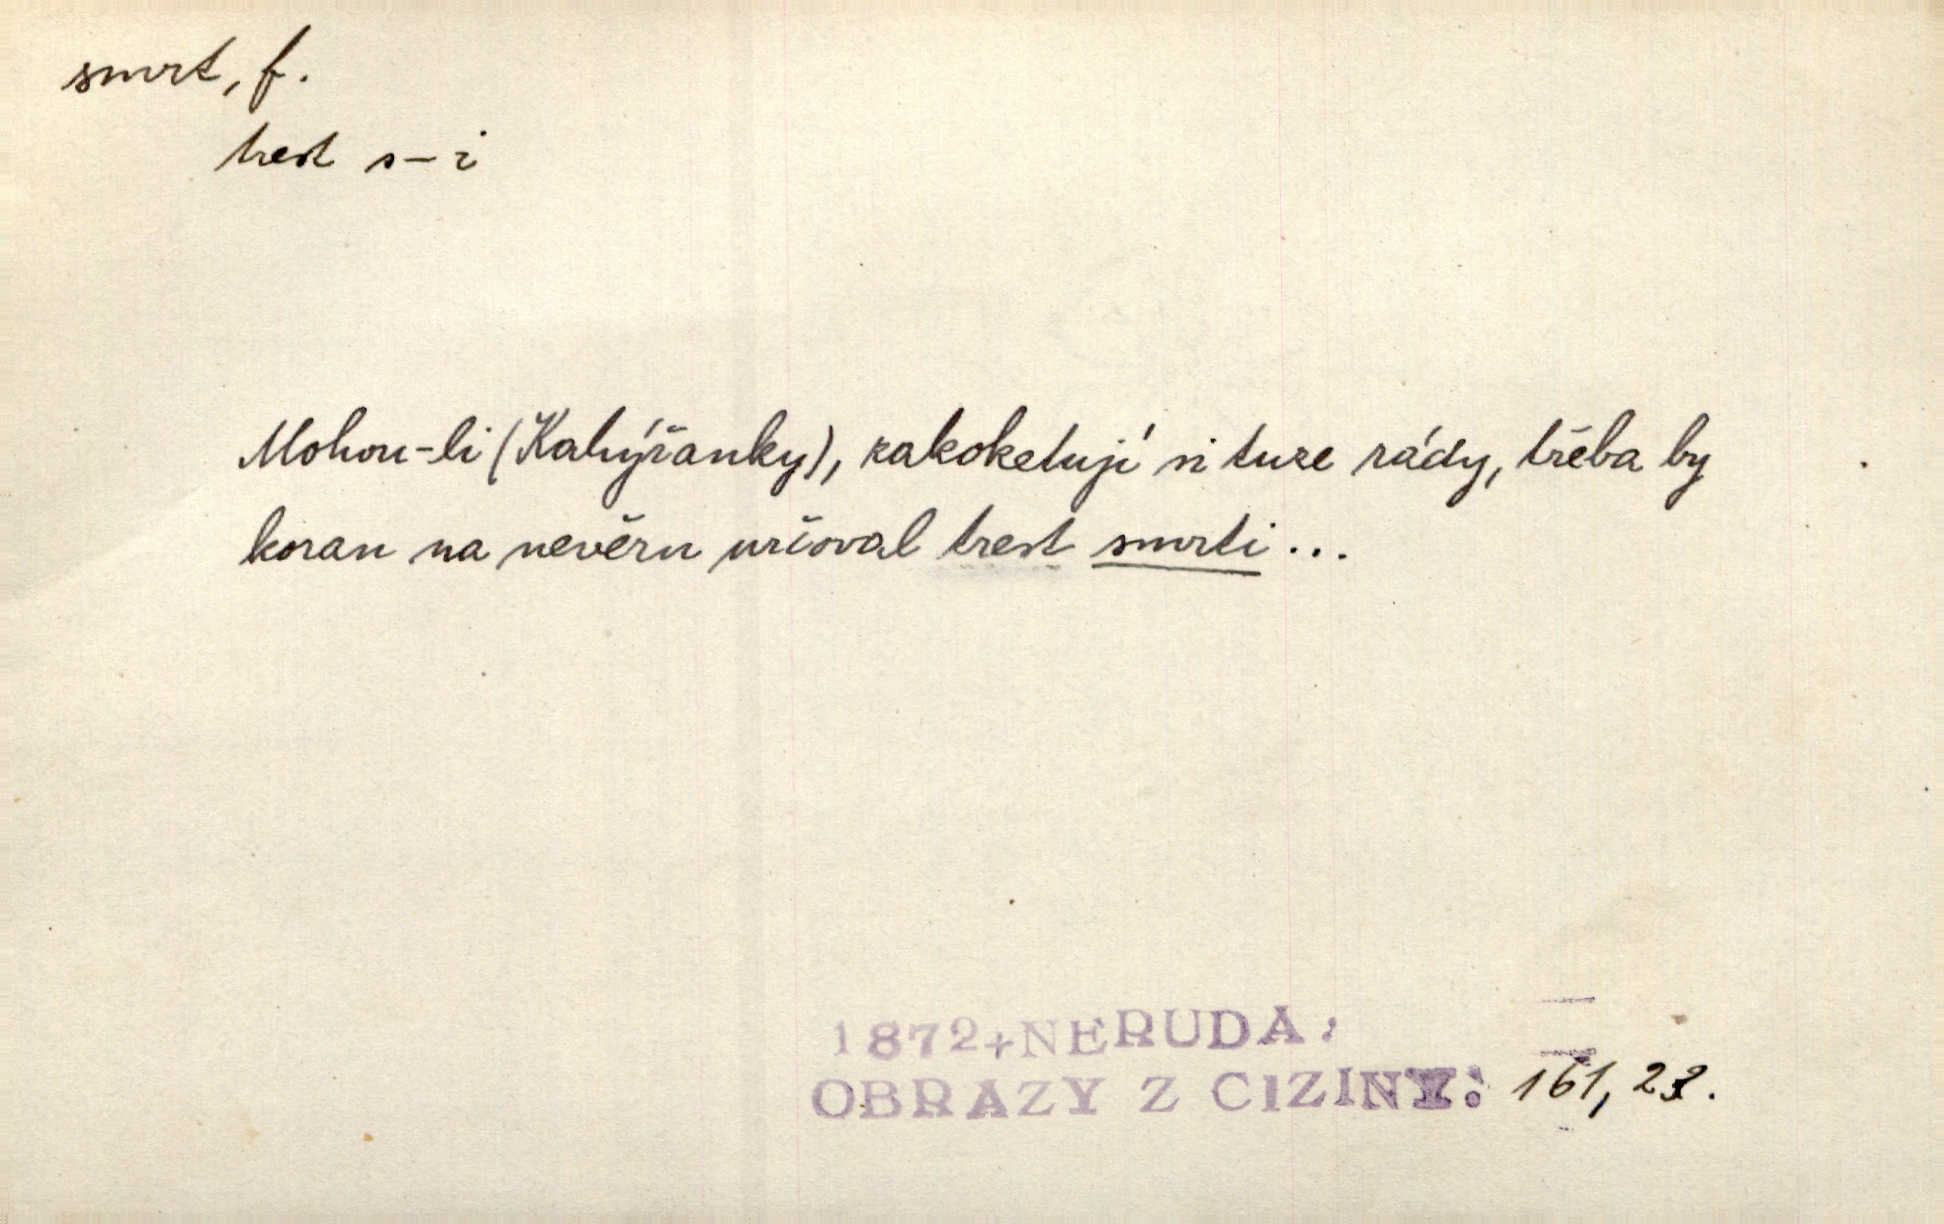 smrt, f.
trest s–i
Mohou-li (Kahýřanky), zakoketují si tuze rády, třeba by
koran na nevěru určoval trest smrti...
1872+NERUDA:
OBRAZY Z CIZINY: 161, 22.